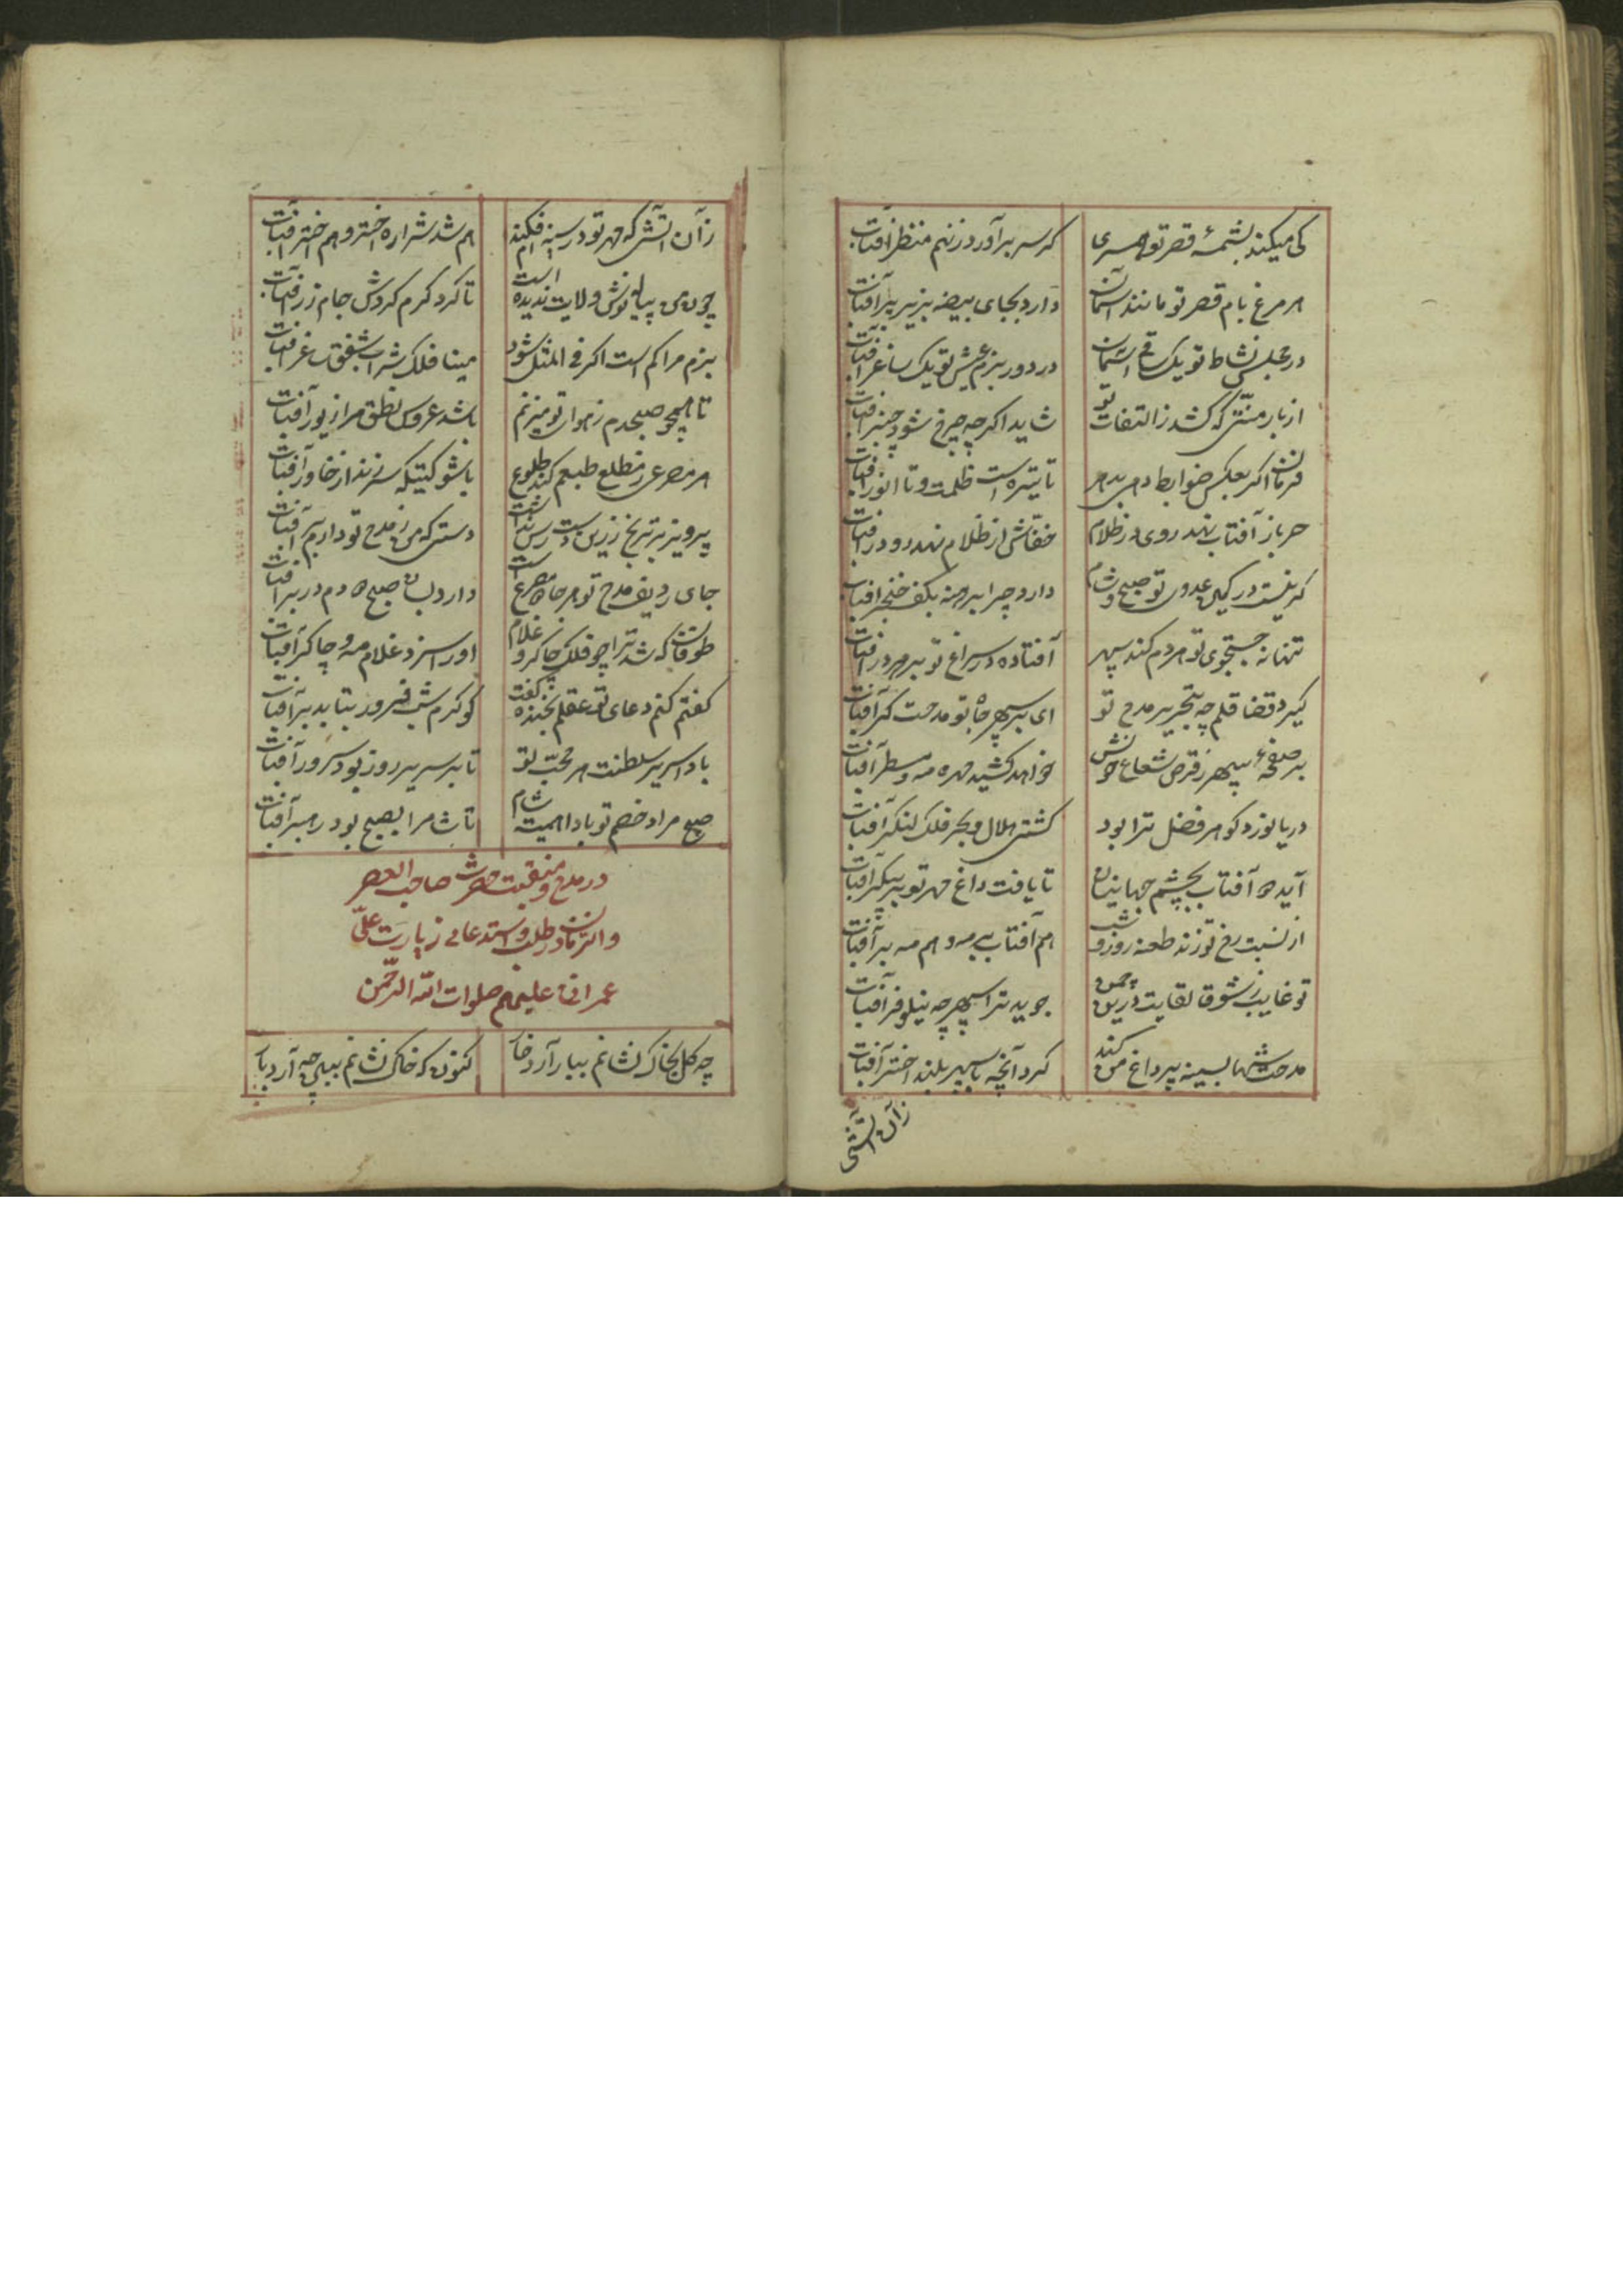 کی میکند بشمسهٔ قصر تو همسری که سر برآورد ز نهم منظر آفتاب
هر مرغ بام قصر تو مانند آسمان دارد بجای بیضه بزیر پر آفتاب
در مجلس نشاط تو یک ساقی آسمان در دور بزم عیش تو یک ساغر آفتاب
از بار منتی که کشد ز التفات تو شاید اگر چه چرخ شود چنبر آفتاب
فرمان اگر بعکس ضوابط دهی بدهر تا تیره است ظلمت و تا انور آفتاب
حربا ز آفتاب نهد روی در ظلام خفاش از ظلام نهد رو در آفتاب
گر نیست در کمین عدوی تو صبح و شام دارد چرا برهنه بکف خنجر آفتاب
تنها نه جستجوی تو هر دم کند سپهر افتاده در سراغ تو بر هر در آفتاب
گیرد قضا قلم چه بتحریر مدح تو ای بر سپهر جاه تو مدحت گر آفتاب
بر صفحهٔ سپهر ز قرص شعاع خویش خواهد کشید مهره مه و مسطر آفتاب
دریا نورد گوهر فضل ترا بود کشتی هلال و بحر فلک لنگر آفتاب
آید ه آفتاب بچشم جهانیان تا یافت داغ مهر تو بر پیکر آفتاب
از نسبت رخ تو زند طعنه روز و شب هم آفتاب بر مه و هم مه بر آفتاب
تو غایب و ز شوق لقایت درین چمن جوید ترا سپهر چه نیلوفر آفتاب
مدحت شها بسینه پر داغ من کند کرد آنچه با سپهر بلند اختر آفتاب
زآن آتشی
زآن آتشی که مهر تو در سینه‌ام فکند هم شد شراره اختر و هم اختر آفتاب
چون من پیاله نوش ولایت ندیده است تا کرد گرم گردش جام زر آفتاب
بزم مرا کم است اگر فی المثل شود مینا فلک شراب شفق ساغر آفتاب
تا همچو صبحدم ز هوای تو میزنم باشد عروس نطق مرا زیور آفتاب
هر مصرعی ز مطلع طبعم کند طلوع با شوکتیکه سر زند از خاور آفتاب
پرویز بر ترنج زرین دست رس نداشت دستی که من ز مدح تو دارم بر آفتاب
جای ردیف مدح تو هر جا مصرع است دارد بسان صبح دوم در بر آفتاب
طوقان که شد ترا چو فلک چاکر و غلام او را سزد غلام مه و چاکر آفتاب
گفتم کنم دعای تو عقلم بخنده گفت کو کرم شب فروز بتابد بر آفتاب
بادا سریر سلطنت هر محب تو تا بر سریر روز بود سرور آفتاب
صبح مراد خصم تو بادا همیشه شام تا شام را بصبح بود رهبر آفتاب
در مدح و منقبت حضرت صاحب العصر
والزمان و طلب و استدعای زیارت علی
عمرانی علیهم صلوات الله الرحمن
چه گل بخاک نشانم ببار آرد خار کنون که خاک نشانم ببین چه آرد بار